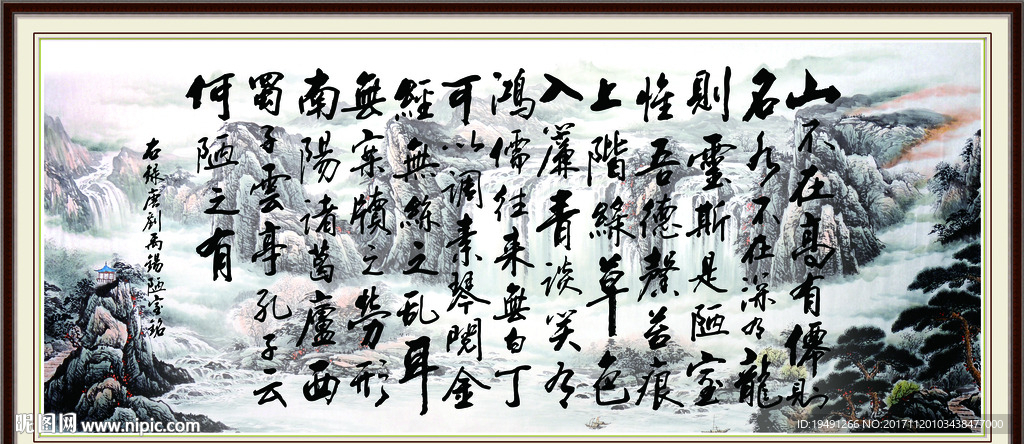 山不在高有僊則
名水不在深有龍
則靈斯是陋室
惟吾德馨苔痕
上階綠草色
入簾青談笑有
鴻儒往来無白丁
可以調素琴閱金
經無絲之乱耳
無案牘之勞形
南陽諸葛廬西
蜀子雲亭孔子云
何陋之有
右錄唐劉禹錫陋室銘
昵图网 www.nipic.com
ID:19491266 NO:20171120103438477000